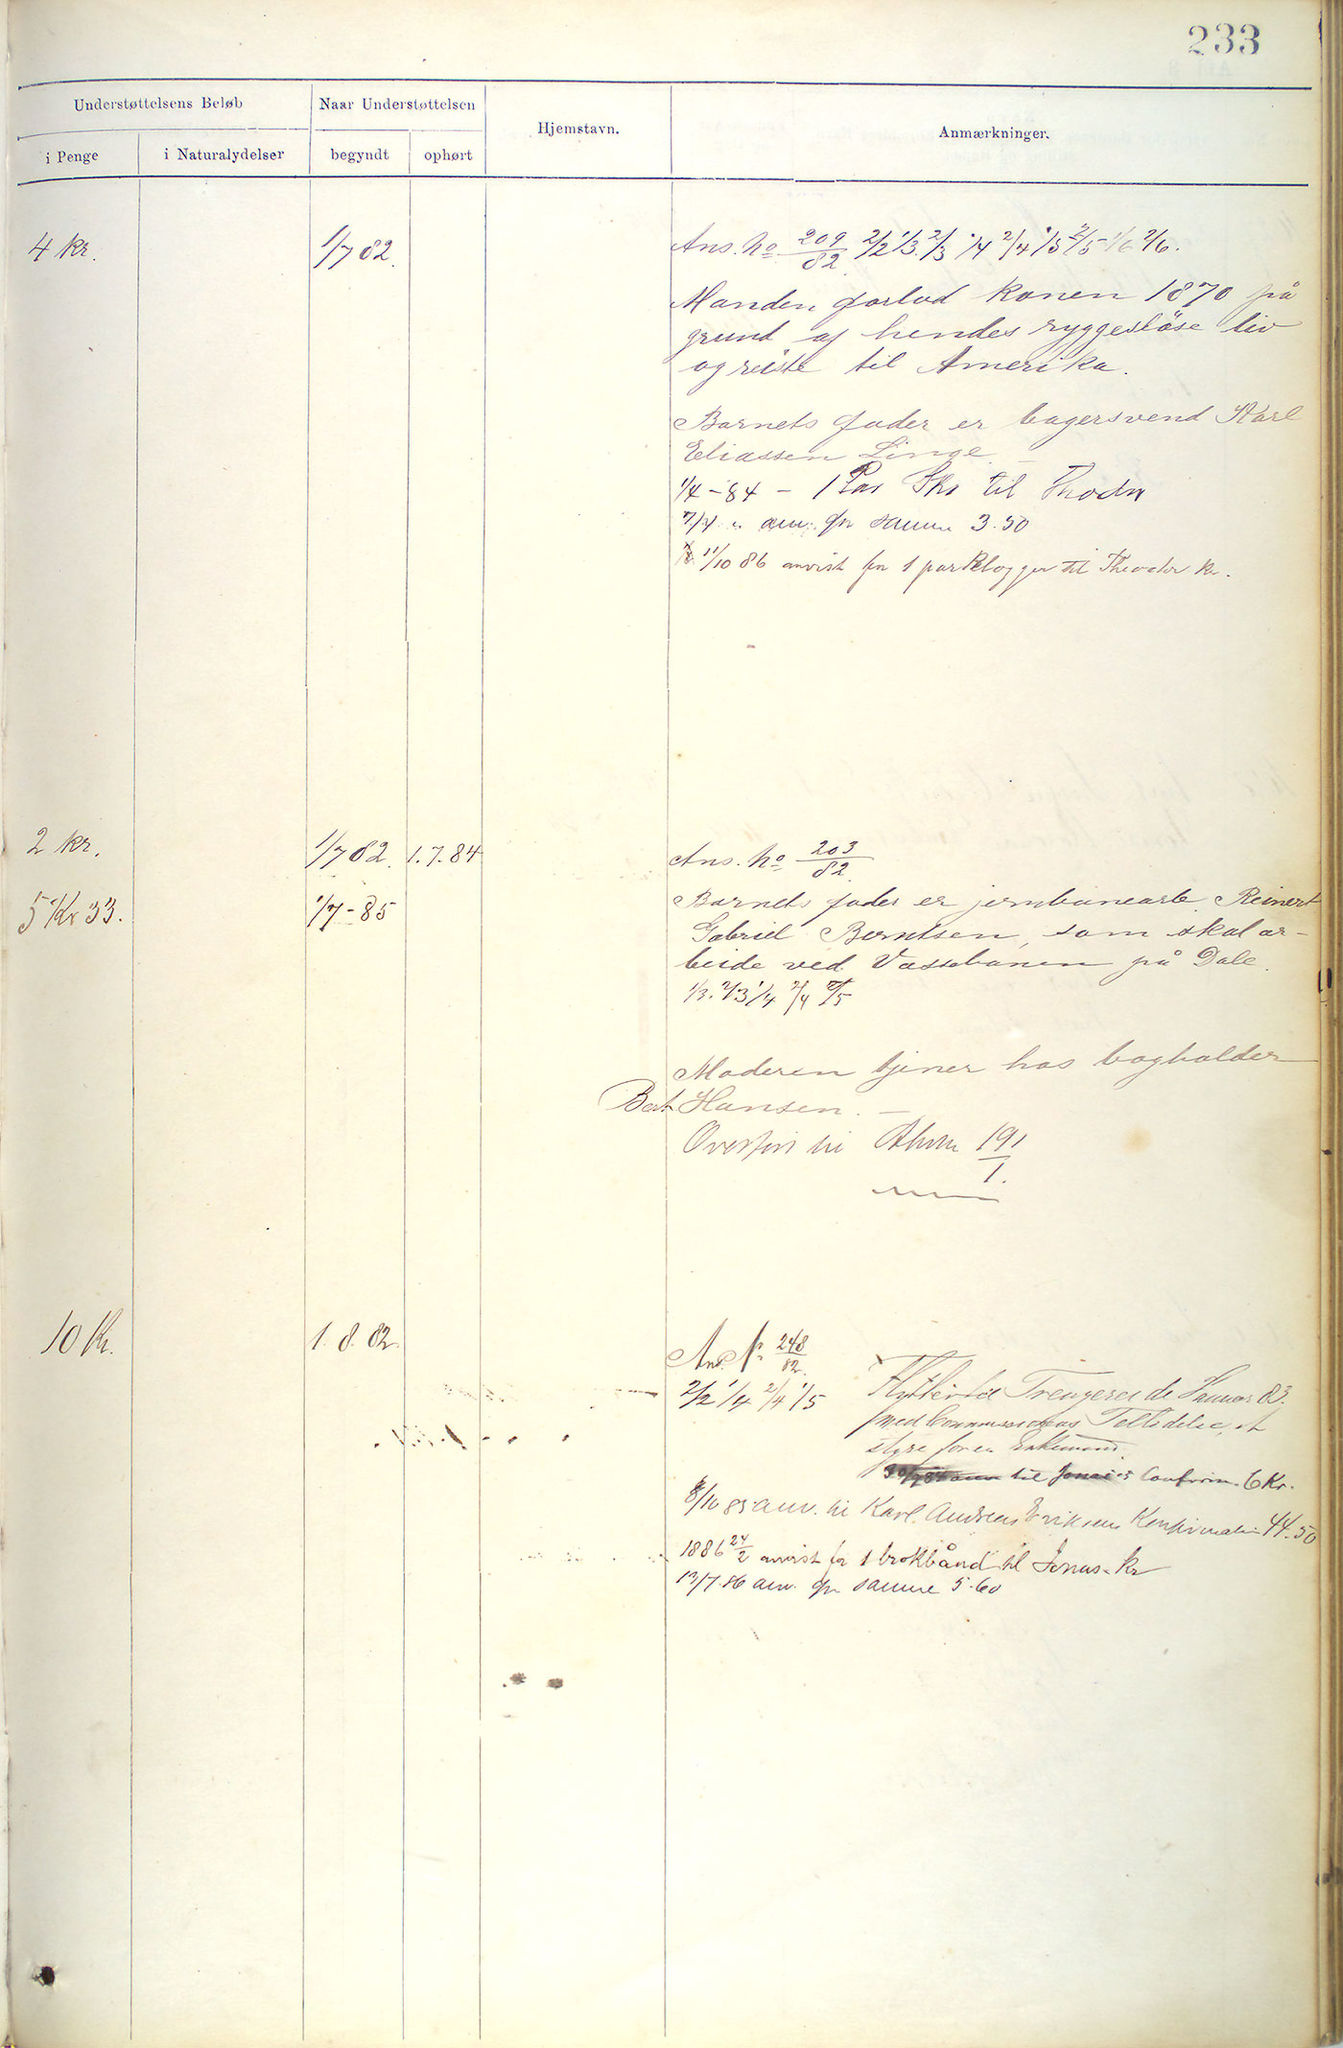 233
Understøttelsens Beløb Naar Understøttelsen Hjemstavn. Anmærkninger.
i Penge i Naturalydelser begyndt ophørt
4 kr. 1/7 82. Ans. No 209/82 2/2 1/3 2/3 1/4 2/4 1/5 2/5 1/6 2/6.
Manden forlod konen 1870 på
grund af hendes ryggesløse liv
og reiste til Amerika.
Barnets fader er bagersvend Karl
Eliassen Linge
1/4-84 - 1 Par Sko til Thodor
7/4 " anv. for samme 3.50
11/10 86 anvist for 1 par Klogger til Theodor kr.
2 kr. 1/7 82. 1.7.84 Ans. No 203/82.
5 Kr 33. 1/7-85 Barnets fader er jernbanearb. Reinert
Gabriel Berntsen, som skal ar-
beide ved Vossebanen på Dale.
1/3. 2/3 1/4 2/4 2/5
Moderen tjener hos bogholder
Hansen. -
Overført til 191/1.
10 Kr. 1.8.82 Ans. No 248/82
2/2 1/4 2/4 1/5 Flyttet til 83.
med Commissionens Tilladelse, at
styre for en Enkemand.
til Confirm. 6 Kr.
8/10 85 anv. til Karl Andreas Eriksens Konfirmation 44.50
1886 24/2 anvist for 1 brokbånd til Jonas. kr
13/7.86 anv. for samme 5.60